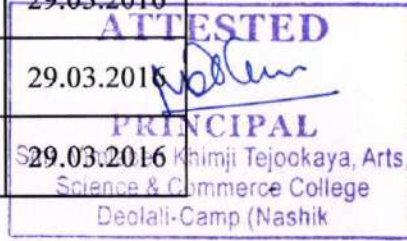 29.03.2016
ATTESTED
29.03.2016
PRINCIPAL
29.03.2016
Khimji Tejookaya, Arts,
Science & Commerce College
Deolali-Camp (Nashik